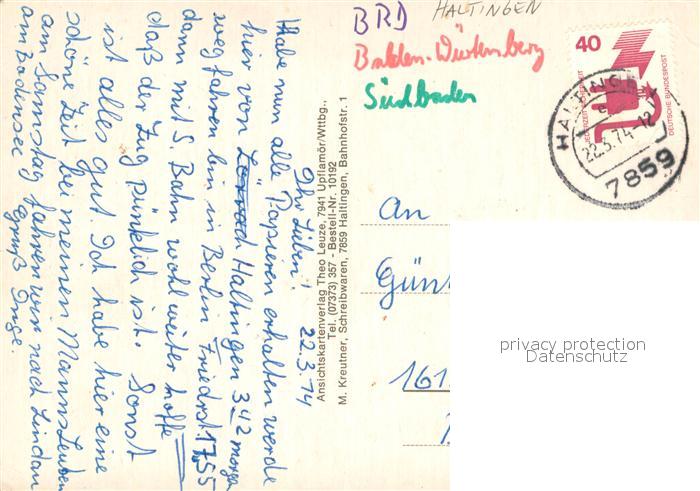 BRD
HALTINGEN
Badden-Würtemberg
Südbaden
40
JEDERZEIT SICHERHEIT
DEUTSCHE BUNDESPOST
HALTINGEN
22.3.74-12
7859
Ihr Lieben! 22.3.74
Habe nun alle Papieren erhalten werde
hier von Lörrach Haltingen 342 morgen
weg fahren bin in Berlin Friedrst 17,55
dann mit S. Bahn wohl weiter hoffe
daß der Zug pünklich ist. Sonst
ist alles gut. Ich habe hier eine
schöne Zeit bei meinen Manns Leuten
am Samstag fahren wir nach Lindau
am Bodensee Gruß Inge.
Ansichtskartenverlag Theo Leuze, 7941 Upflamör/Wttbg.,
Tel. (07373) 357 - Bestell-Nr. 10192
M. Kreutner, Schreibwaren, 7859 Haltingen, Bahnhofstr. 1
An
Günt
161
privacy protection
Datenschutz